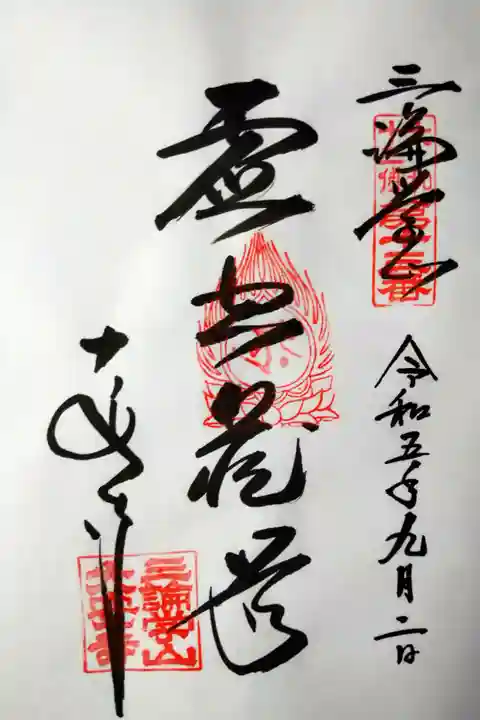 三論学山
令和五年九月二日
虚空蔵菩薩
大安寺
三論学山
大安寺